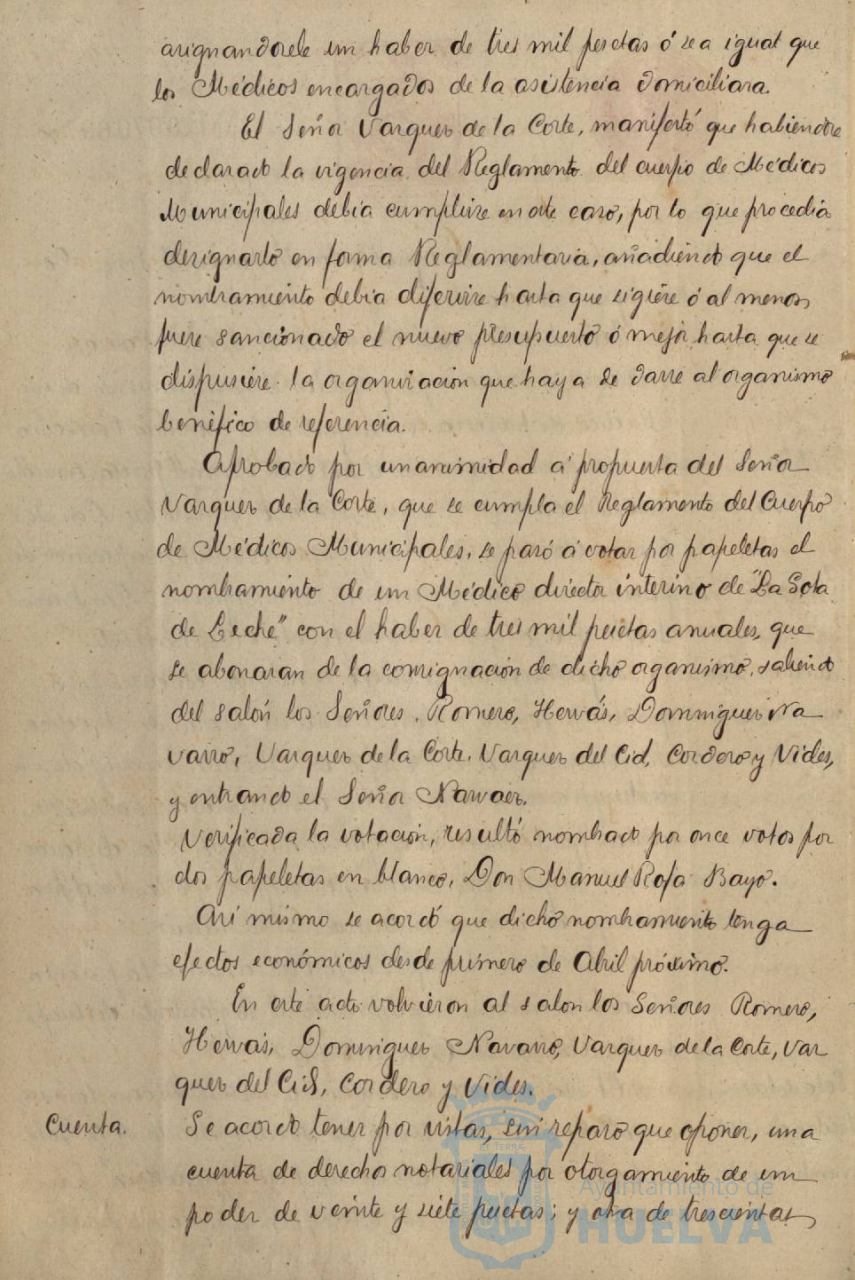 asignandosele un haber de tres mil pesetas ó sea igual que
los Médicos encargados de la asistencia domiciliaria.
El Señor Vazquez de la Corte, manifestó que habiendose
declarado la vigencia del Reglamento del cuerpo de Médicos
Municipales debia cumplirse en este caso, por lo que procedia
designarlo en forma Reglamentaria, añadiendo que el
nombramiento debia diferirse hasta que rigiese ó al menos
fuese sancionado el nuevo presupuesto ó mejor hasta que se
dispusiese la organización que haya de darse al organismo
benéfico de referencia.
Aprobado por unanimidad á propuesta del Señor
Vazquez de la Corte, que se cumpla el Reglamento del Cuerpo
de Médicos Municipales, se pasó á votar por papeletas el
nombramiento de un Médico director interino de "La Gota
de Leche" con el haber de tres mil pesetas anuales, que
se abonaran de la consignación de dicho organismo, saliendo
del salón los Señores, Romero, Hervás, Dominguez Na
varro, Vazquez de la Corte, Vazquez del Cid, Cordero y Vides,
y entrando el Señor Narvaez.
Verificada la votación, resultó nombrado por once votos por
dos papeletas en blanco, Don Manuel Rofa Bayo.
Asi mismo se acordó que dicho nombramiento tenga
efectos económicos desde primero de Abril próximo.
En este acto volvieron al salon los Señores Romero,
Hervás, Dominguez Navarro, Vazquez de la Corte, Vaz
quez del Cid, Cordero y Vides.
Cuenta.
Se acordó tener por vistas, sin reparo que oponer, una
cuenta de derechos notariales por otorgamiento de un
poder de veinte y siete pesetas; y otra de trescientas
Ayuntamiento de
HUELVA